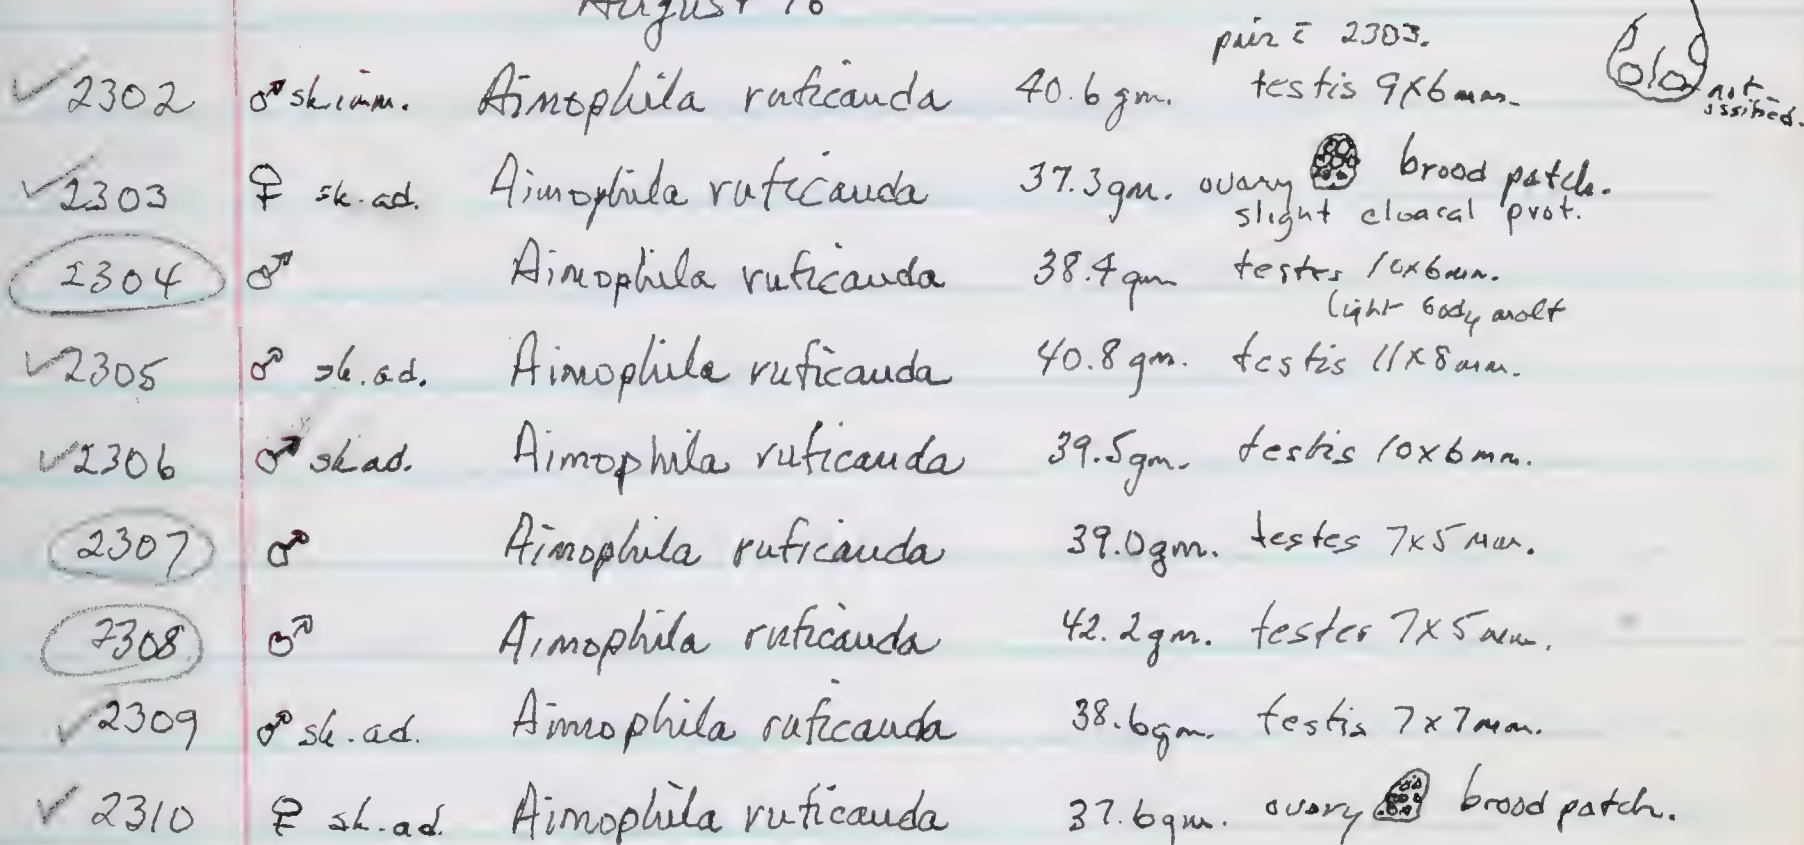 August 16
pair c̄ 2303.
✓2302 ♂ sk. imm. Aimophila ruficauda 40.6 gm. testis 9x6mm. not ossified.
✓2303 ♀ sk. ad. Aimophila ruficauda 37.3gm. ovary brood patch.
slight cloacal prot.
2304 ♂ Aimophila ruficauda 38.4 gm testes 10x6mm.
light body molt
✓2305 ♂ sk. ad. Aimophila ruficauda 40.8 gm. testis 11x8mm.
✓2306 ♂ sk ad. Aimophila ruficauda 39.5gm. testis 10x6mm.
2307 ♂ Aimophila ruficauda 39.0gm. testes 7x5 mm.
2308 ♂ Aimophila ruficauda 42.2gm. testes 7x5mm.
✓2309 ♂ sk. ad. Aimophila ruficauda 38.6gm. testis 7x7mm.
✓2310 ♀ sk. ad. Aimophila ruficauda 37.6gm. ovary brood patch.